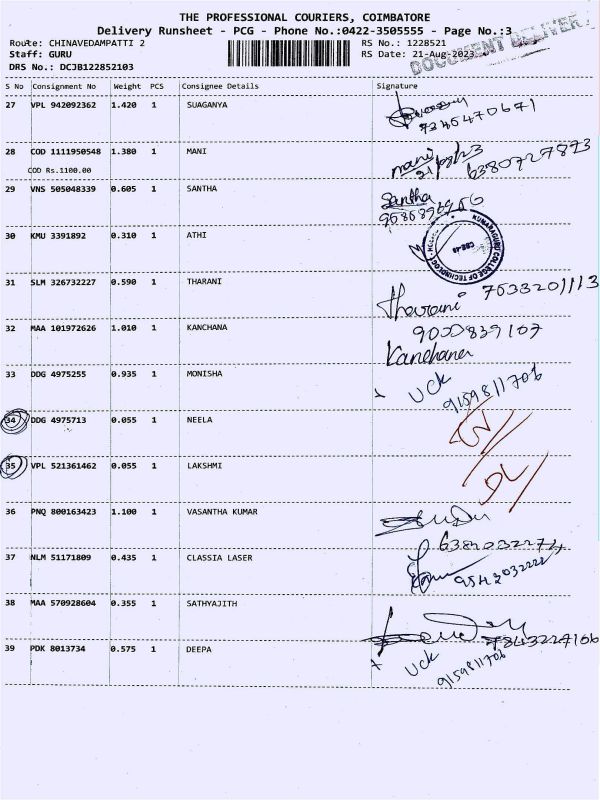 THE PROFESSIONAL COURIERS, COIMBATORE
Delivery Runsheet - PCG - Phone No.:0422-3505555 - Page No.:3
Route: CHINAVEDAMPATTI 2 RS No.: 1228521
Staff: GURU RS Date: 21-Aug-2023
DOCUMENT DELIVERY
DRS No.: DCJB122852103
S No Consignment No Weight PCS Consignee Details Signature
27 VPL 942092362 1.420 1 SUAGANYA
7345470671
28 COD 1111950548 1.380 1 MANI mani
21/08/23 6380727873
COD Rs.1100.00
29 VNS 505048339 0.605 1 SANTHA Santha
30 KMU 3391892 0.310 1 ATHI
KUMARAGURU COLLEGE OF TECHNOLOGY
31 SLM 326732227 0.590 1 THARANI Tharani 7533201113
32 MAA 101972626 1.010 1 KANCHANA 9000839107
Kanchana
33 DDG 4975255 0.935 1 MONISHA UCK
9159811706
34 DDG 4975713 0.055 1 NEELA
35 VPL 521361462 0.055 1 LAKSHMI DL
36 PNQ 800163423 1.100 1 VASANTHA KUMAR
37 NLM 51171809 0.435 1 CLASSIA LASER
38 MAA 570928604 0.355 1 SATHYAJITH
39 PDK 8013734 0.575 1 DEEPA UCK
9159811706